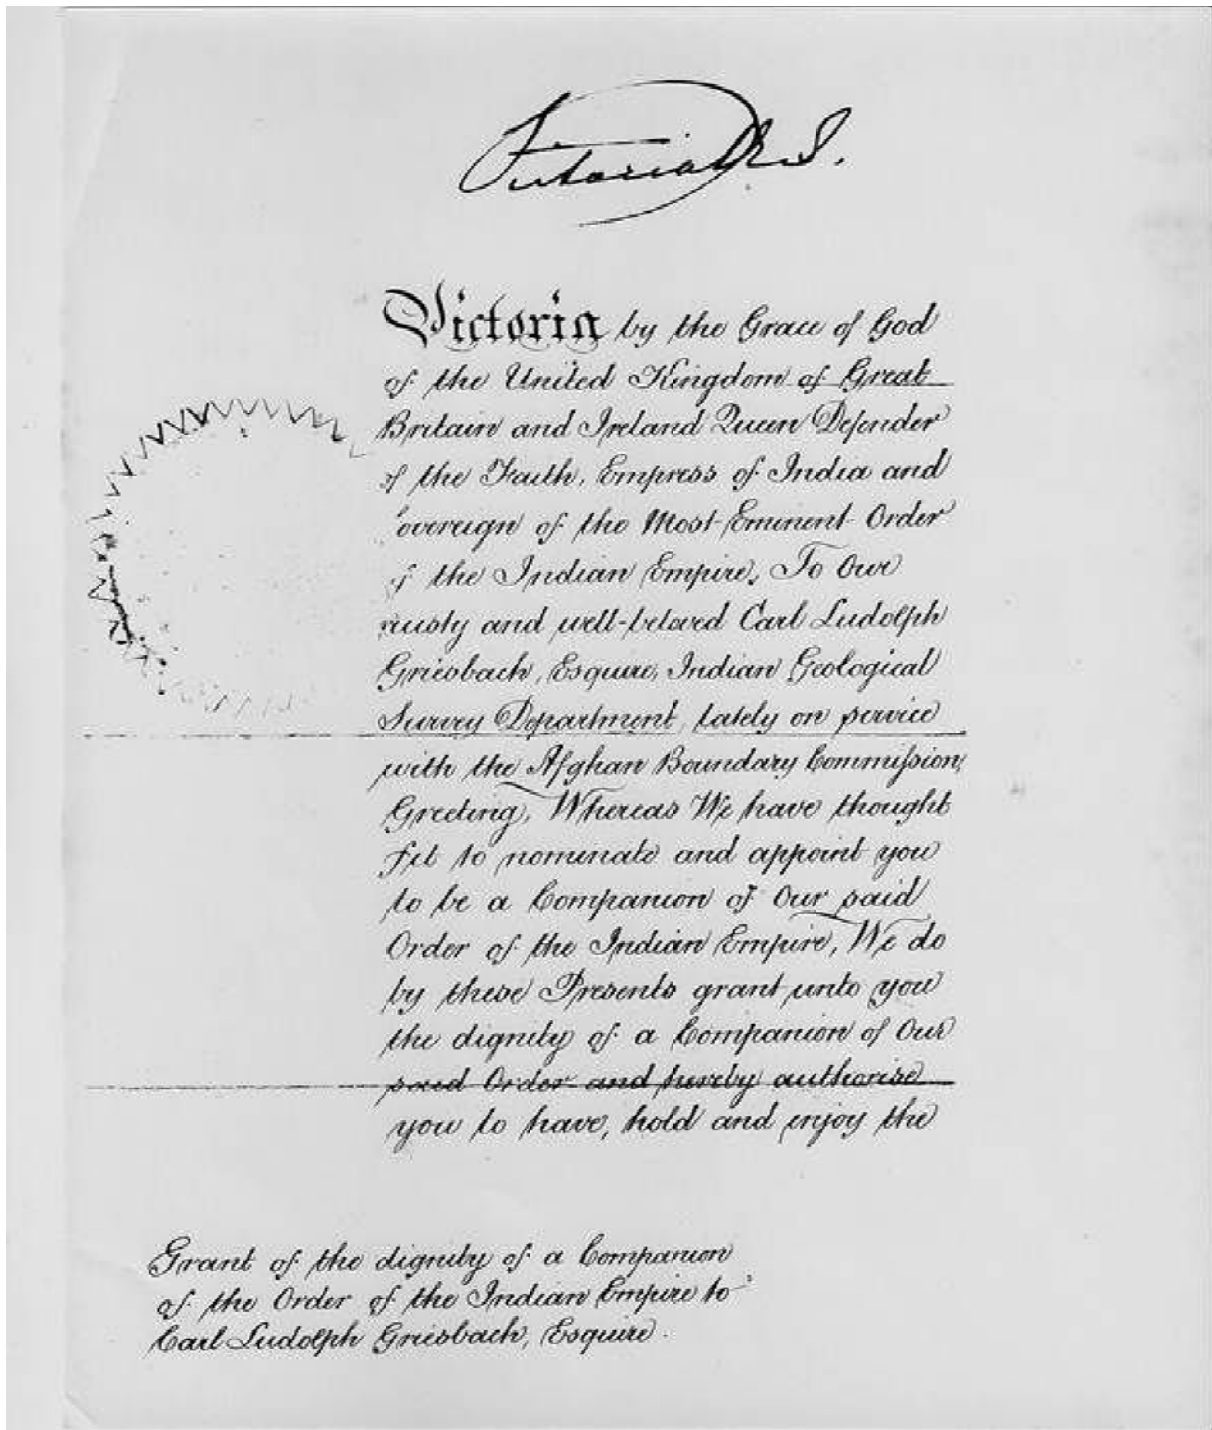 Victoria R.I.
Victoria by the Grace of God
of the United Kingdom of Great
Britain and Ireland Queen Defender
of the Faith, Empress of India and
overeign of the Most Eminent Order
of the Indian Empire, To Our
rusty and well-beloved Carl Ludolph
Griesbach, Esquire, Indian Geological
Survey Department, lately on service
with the Afghan Boundary Commission,
Greeting, Whereas We have thought
fit to nominate and appoint you
to be a Companion of Our said
Order of the Indian Empire, We do
by these Presents grant unto you
the dignity of a Companion of Our
said Order and hereby authorise
you to have, hold and enjoy the
Grant of the dignity of a Companion
of the Order of the Indian Empire to
Carl Ludolph Griesbach, Esquire.